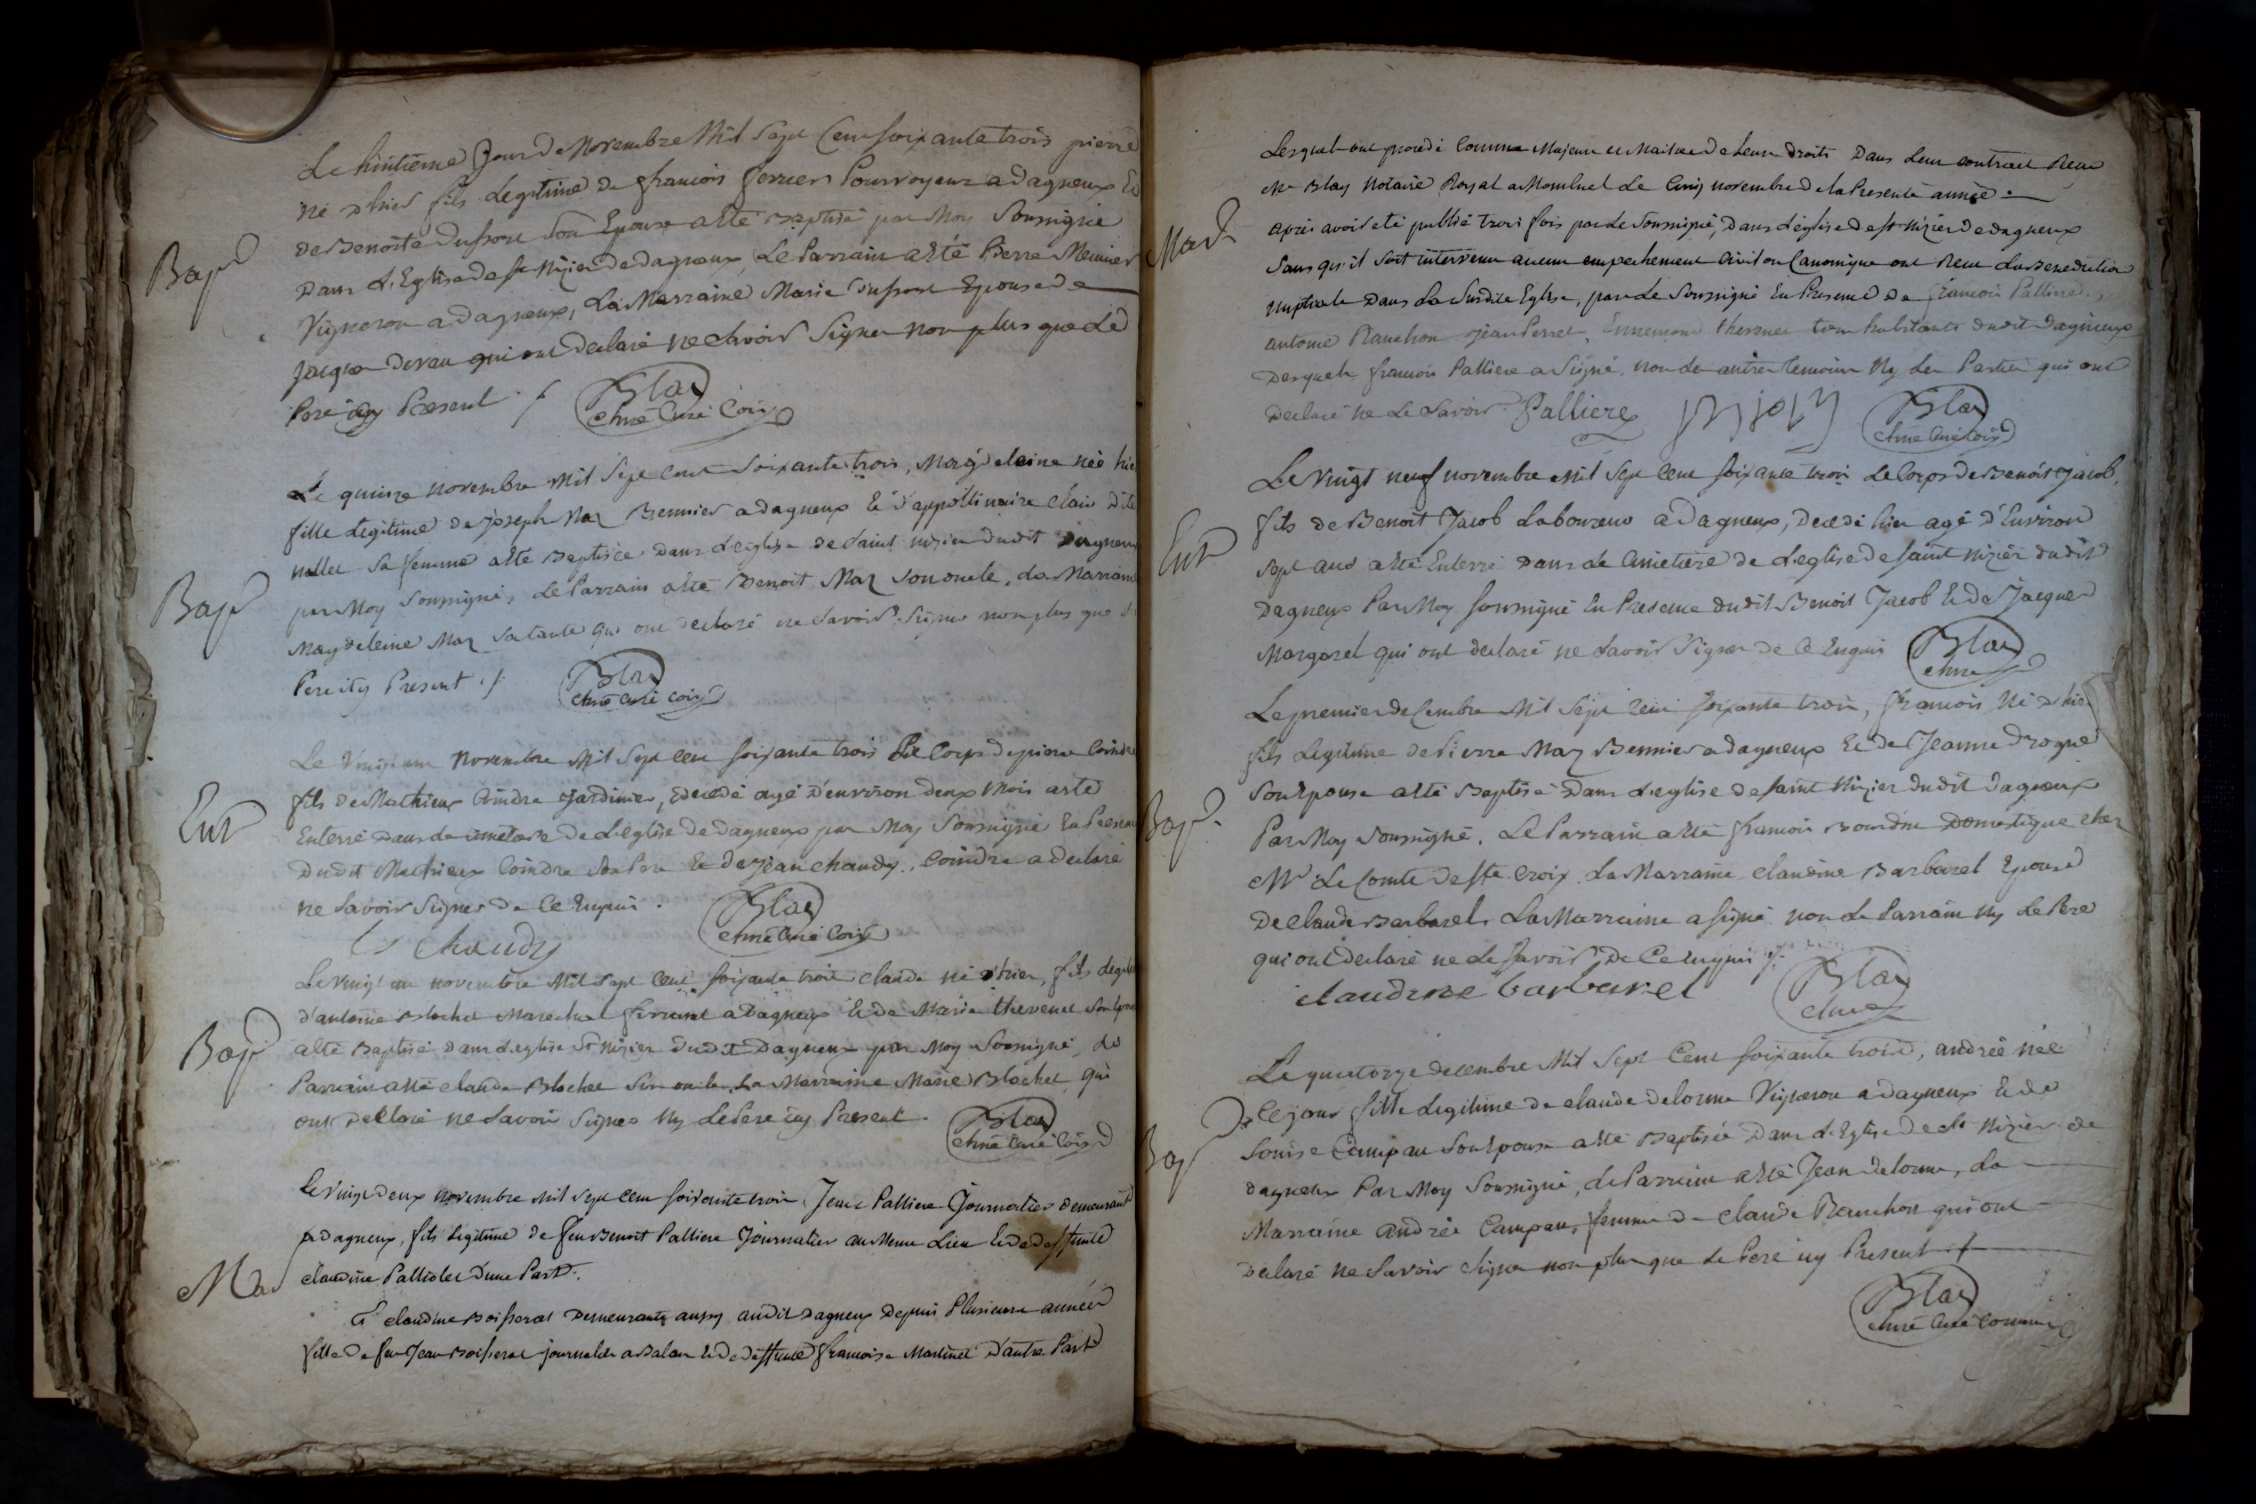 Le huitieme Jour de Novembre Mil Sept Cent soixante trois pierre
né d'hier fils Legitime de francois ferrier Pourvoyeur a dagneux Et
De Benoite dufour son Epouse a eté Baptisé par Moy Soussigné
Bap
Dans L'Eglise de st Nizier de dagneux, Le Parrain a eté Pierre Meunier
Vigneron a dagneux, La Marraine Marie dufour Epouse de
Jacque qui ont declaré ne Savoir Signer non plus que Le
Pere icy Present ./. Blay
chne Curé Coix
Le quinze novembre Mil Sept cent soixante trois, Magdeleine née hier
fille Legitime de joseph Maz Bennier a dagneux Et d'appollinaire clair dite
nallet Sa femme a eté Baptisée Dans L'eglise de saint nizier dudit Dagneux
Bap
par Moy soussigné, Le Parrain a eté Benoit Maz son oncle, La Marraine
Magdeleine Maz sa tante qui ont declaré ne savoir signer non plus que le
Pere icy Present ./. Blay
chne curé coix
Le Vingt un Novembre Mil Sept cent soixante trois Le Corps de pierre Coindre
fils de Mathieux Coindre Jardinier, decedé agé d'environ deux Mois a eté
Ent
Enterré Dans Le cimetiere de L'eglise de dagneux par Moy Soussigné En Presence
Dudit Mathieux Coindre son Pere Et de Jean chaudy. Coindre a declaré
ne savoir signer de Ce Enquis . Blay
chne Curé Coix
Chaudy
Le vingt un novembre Mil Sept Cent soixante trois claude né d'hier, fils Legitime
d'antoine Blochet Marechal ferrant a Dagneux Et de Marie thevenet son Epouse
Bap
a eté Baptisé Dans L'eglise st Nizier dudit Dagneux par Moy Soussigné, Le
Parrain a eté claude Blochet son oncle, La Marraine Marie Blochet, qui
ont declaré ne savoir signer Ny Le Pere icy Present. Blay
chne Curé Coix
Le vingt deux novembre Mil Sept cent soixante trois Jean Palliere Journalier Demeurant
a dagneux, fils Legitime de feu Benoit Palliere Journalier au Meme Lieu Et de deffunte
Mar
claudine Palliolet d'une Part.
Et claudine Boisserat Demeurante aussy audit Dagneux Depuis Plusieurs année
fille de feu Jean Boisserat journalier a Balan Et de deffunte francoise Martinet D'autre Part
Lesquels ont procedé Comme Majeur et Maitre de Leurs droits Dans Leur contract Recu
Me Blay Notaire Royal a Montluel Le Cinq novembre de la Presente année.
Mar
après avoir eté publié trois fois par Le Soussigné, Dans L'eglise de st Nizier de dagneux
Sans qu'il soit intervenu aucun empechement Civil ou Canonique ont Recu La Benediction
nuptiale Dans La susdite Eglise, par Le Soussigné En Presence de francois Palliere,
antoine Planchon Jean Perret, Ennemond thevenet tous habitants dudit Dagneux
Desquels francois Palliere a signé, non les autres temoins Ny Les Parties qui ont
Declaré ne Le Savoir. Palliere Blay
chne Curé Coix
Le Vingt neuf novembre Mil Sept cent soixante trois Le Corps de Benoit Jacob,
fils de Benoit Jacob Laboureur a Dagneux, Decedé hier agé d'Environ
Ent
sept ans a eté Enterré Dans Le Cimetiere de L'eglise de saint Nizier dudit
Dagneux Par Moy soussigné En Presence dudit Benoit Jacob Et de Jacques
Margarel qui ont declaré ne Savoir Signer de Ce Enquis Blay
chne
Le premier decembre Mil Sept Cent soixante trois, francois né d'hier
fils Legitime de Pierre Maz Bennier a dagneux Et de Jeanne drogue
Son Epouse a eté Baptisé Dans L'eglise de saint Nizier dudit dagneux
Bap
Par Moy Soussigné, Le Parrain a eté francois Domestique chez
Mr Le Comte de ste Croix La Marraine claudine Barbarel Epouse
De claude Barbarel, La Marraine a signé non Le Parrain Ny Le Pere
qui ont declaré ne Le savoir De Ce Enquis ./. Blay
chne
claudine barbarel
Le quatorze decembre Mil Sept Cent soixante trois, andrée née
Ce jour fille Legitime de claude delorme Vigneron a dagneux Et de
Bap
Louise Campan Son Epouse a eté Baptisée Dans L'Eglise de st Nizier de
dagneux Par Moy Soussigné, Le Parrain a eté Jean delorme, La
Marraine andrée Campan, femme de claude Planchon qui ont
Declaré ne Savoir Signer non plus que Le Pere icy Present ./.
Blay
chne Curé Commis